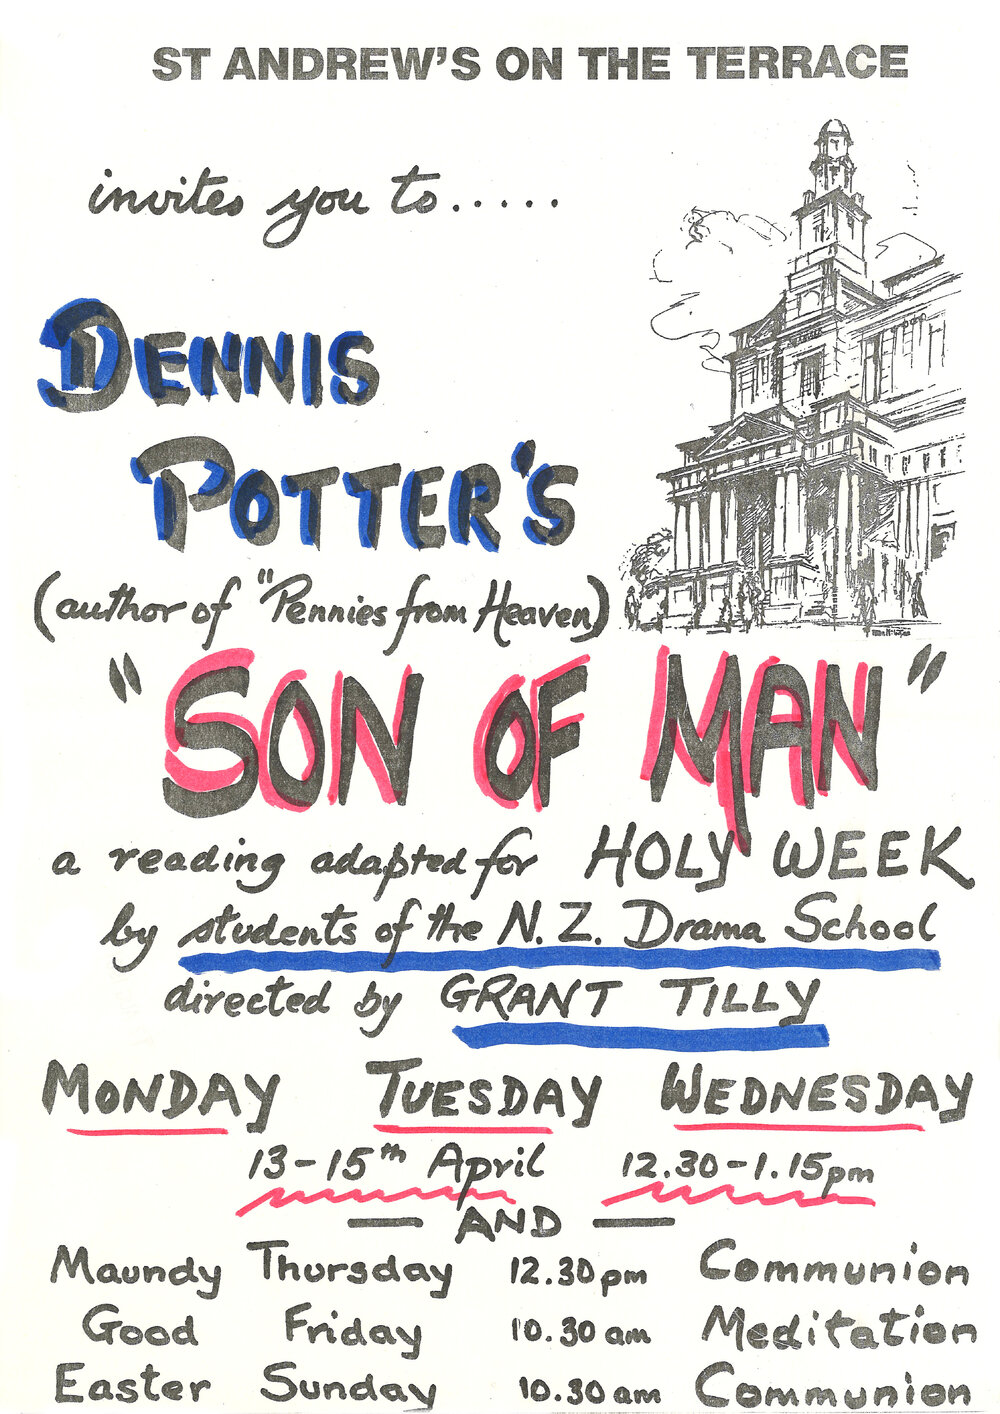 ST ANDREW'S ON THE TERRACE
invites you to.....
DENNIS
POTTER'S
(author of "Pennies from Heaven)
"SON OF MAN"
a reading adapted for HOLY WEEK
by students of the N.Z. Drama School
directed by GRANT TILLY
MONDAY TUESDAY WEDNESDAY
13-15th April 12.30-1.15pm
— AND —
Maundy Thursday 12.30pm Communion
Good Friday 10.30am Meditation
Easter Sunday 10.30am Communion